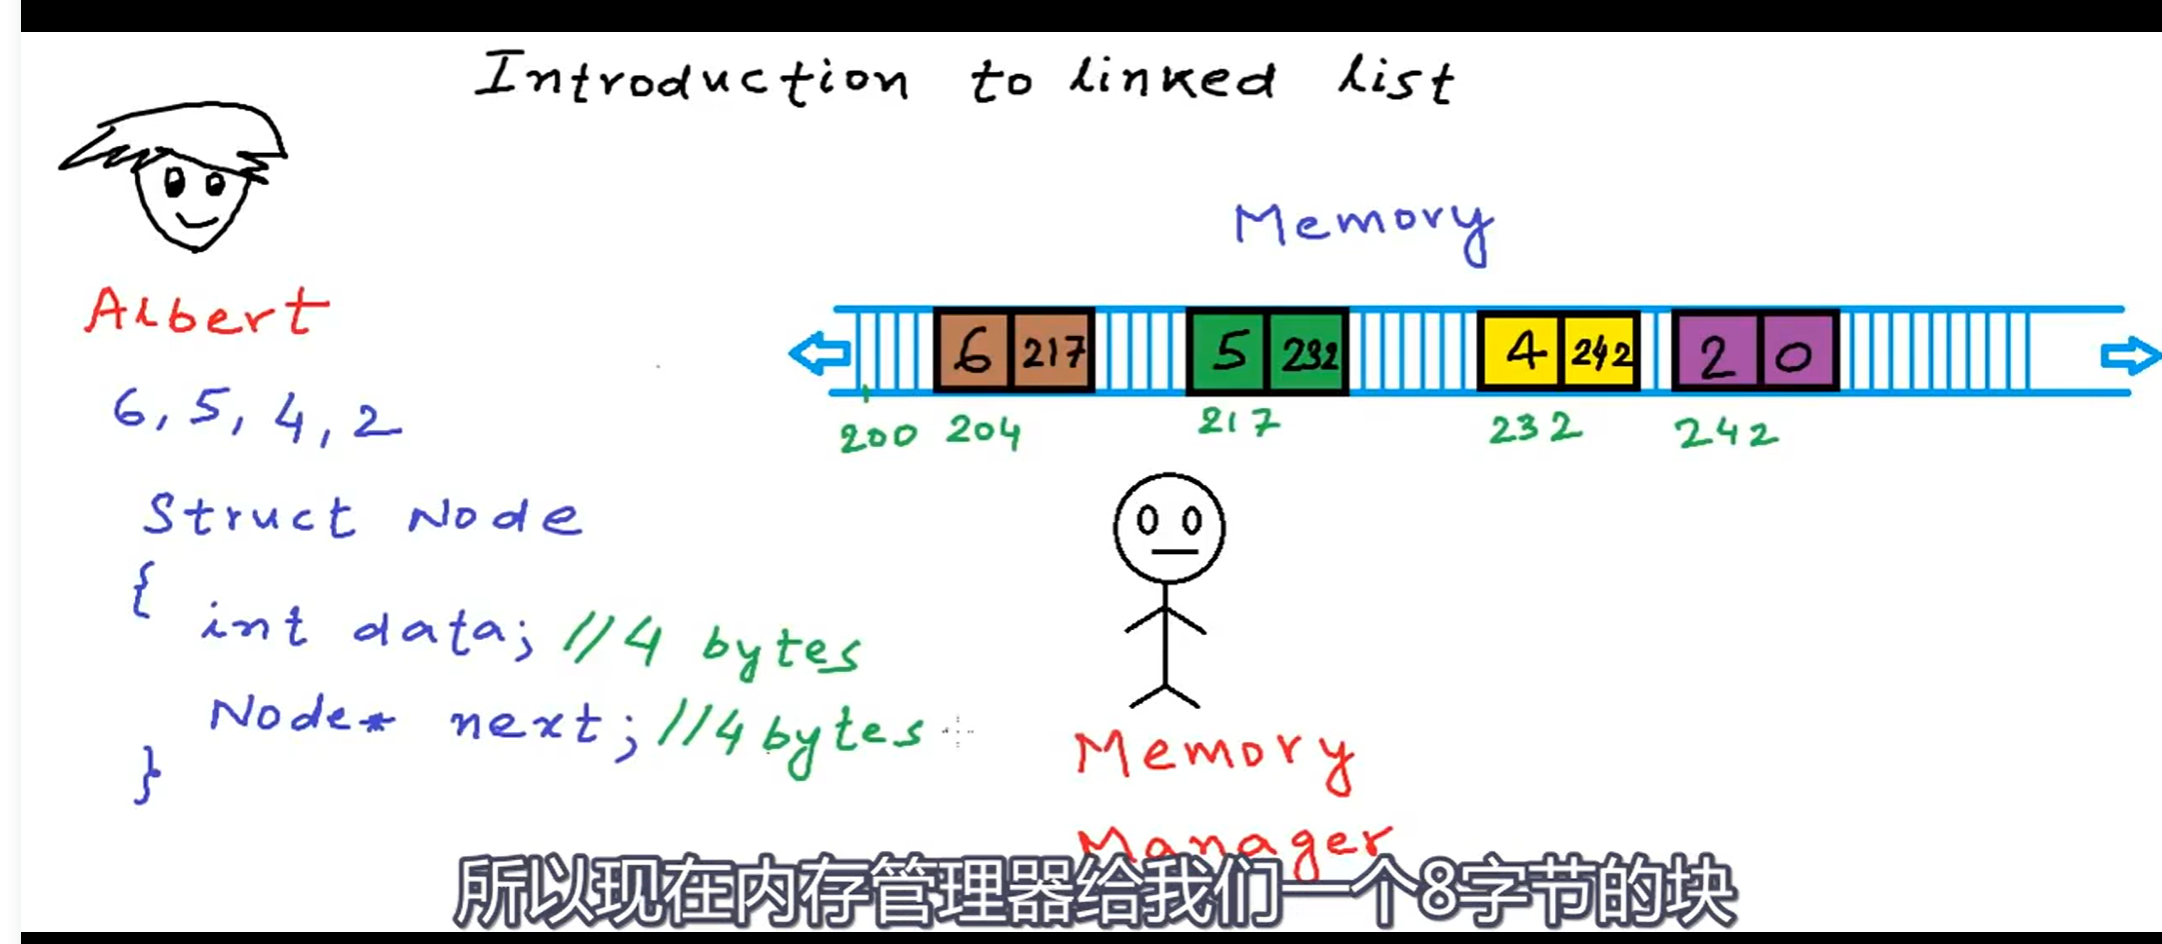 Introduction to linked list
Albert
6, 5, 4, 2
Struct Node
{
int data; //4 bytes
Node* next; //4 bytes
}
Memory
6 217 5 232 4 242 2 0
200 204 217 232 242
Memory
Manager
所以现在内存管理器给我们一个8字节的块